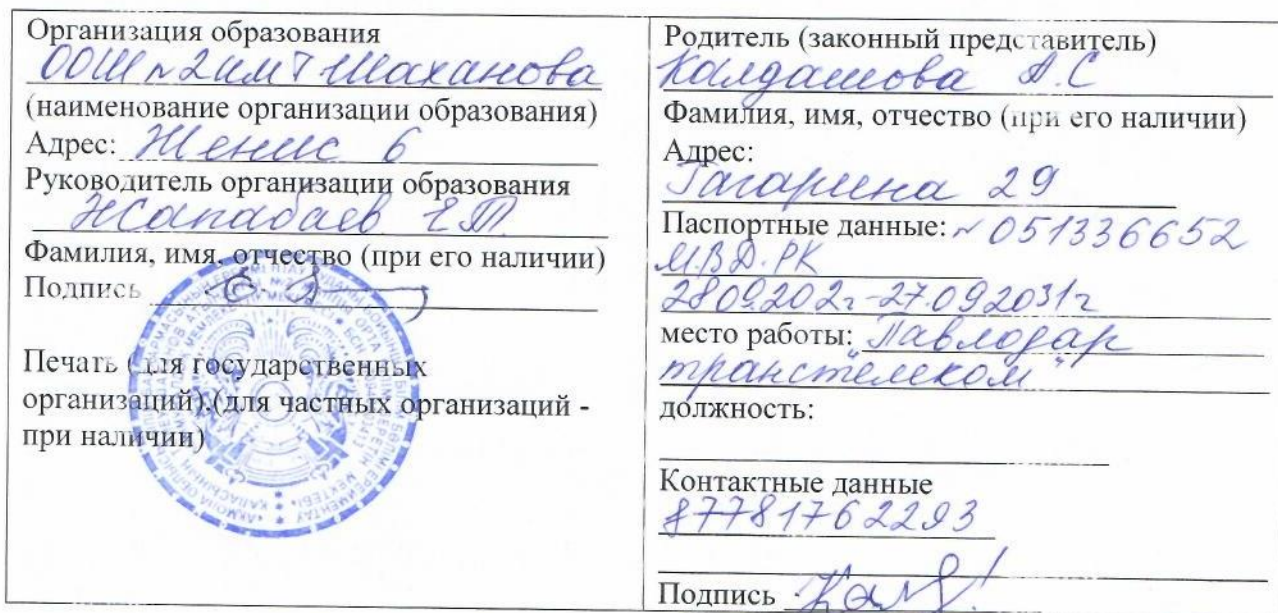 Организация образования
ООШ №2 им Т Шаханова
(наименование организации образования)
Адрес: Женис 6
Руководитель организации образования
Жапабаев Е.Т.
Фамилия, имя, отчество (при его наличии)
Подпись
Печать (для государственных
организаций).(для частных организаций -
при наличии)
Родитель (законный представитель)
Калдашова А.С
Фамилия, имя, отчество (при его наличии)
Адрес:
Гагарина 29
Паспортные данные: № 051336652
М.В.Д.РК
28.09.202г-27.092031г
место работы: "Павлодар
транстелеком"
должность:
Контактные данные
87781762293
Подпись